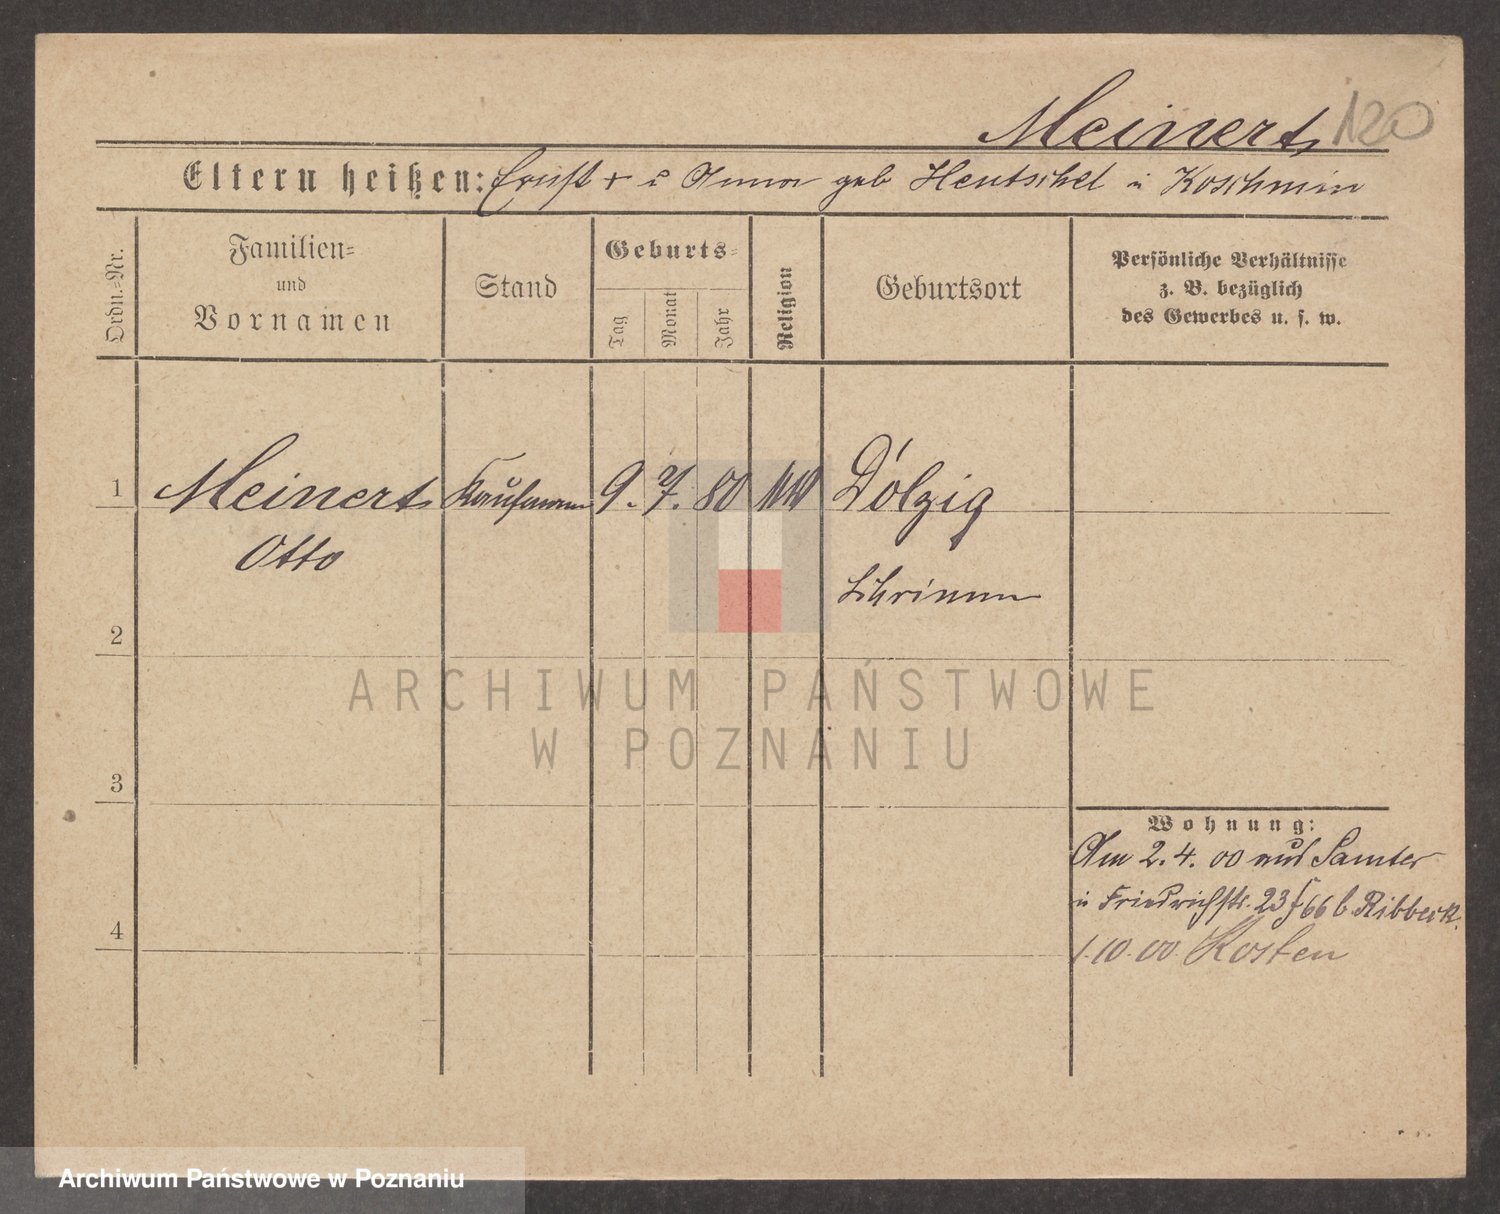 Meinert 120
Eltern heißen: Ernst + u Anna geb Hentschel in Koschmin
Ordn.-Nr.
Familien-
und
Vornamen
Stand
Geburts-
Tag
Monat
Jahr
Religion
Geburtsort
Persönliche Verhältnisse
z. B. bezüglich
des Gewerbes u. s. w.
1 Meinert Kaufmann 9. 7. 80 Dolzig
Otto
Schrimm
2
3
4
Wohnung:
Am 2. 4. 00 aus Samter
in Friedrichstr. 23 66 b. Ribbeck.
1.10.00 Kosten
ARCHIWUM PAŃSTWOWE
W POZNANIU
Archiwum Państwowe w Poznaniu